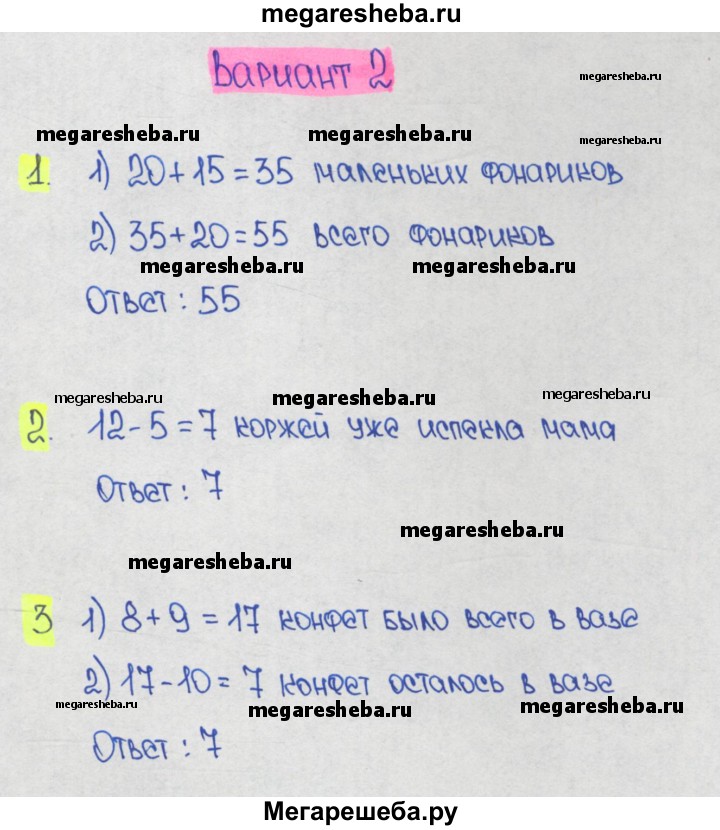 megaresheba.ru
Вариант 2
megaresheba.ru
megaresheba.ru megaresheba.ru megaresheba.ru
1. 1) 20+15=35 маленьких фонариков
2) 35+20=55 всего фонариков
megaresheba.ru megaresheba.ru
Ответ: 55
megaresheba.ru megaresheba.ru megaresheba.ru
2. 12-5=7 коржей уже испекла мама
Ответ: 7
megaresheba.ru
megaresheba.ru
3 1) 8+9=17 конфет было всего в вазе
2) 17-10=7 конфет осталось в вазе
megaresheba.ru megaresheba.ru megaresheba.ru
Ответ: 7
Мегарешеба.ру